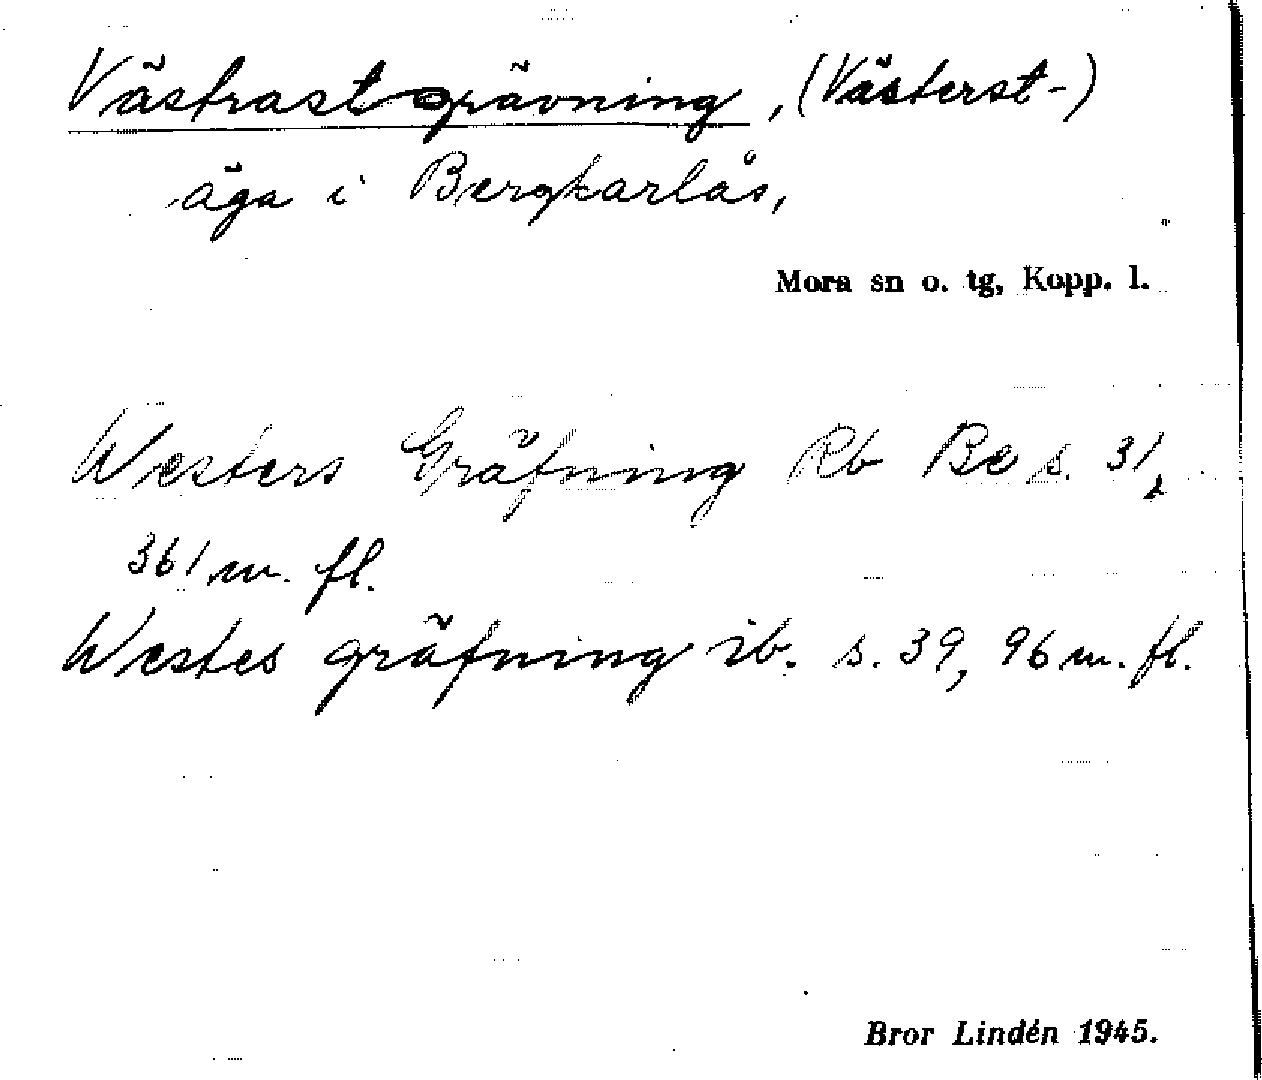 Västrastgrävning, (Västerst-)
äga i Bergkarlås,
Mora sn o. tg, Kopp. l.
Westers Gräfning Rb Be s. 31,
361 m. fl.
Westes gräfning ib. s. 39, 96 m. fl.
Bror Lindén 1945.